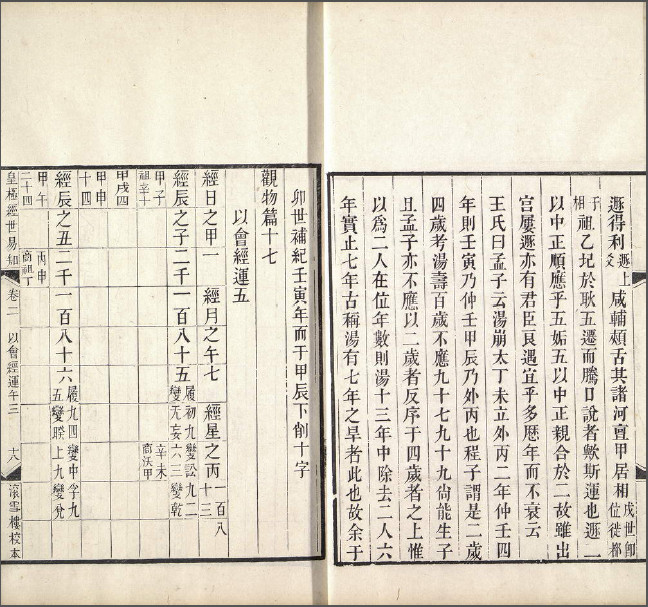 遯得利遯上爻咸輔頰舌其諸河亶甲居相戌世卽位徙都
于相祖乙圮於耿五遷而騰口說者歟斯運也遯一
以中正順應乎五姤五以中正親合於二故雖出
宫屢遯亦有君臣艮遇宜乎多歷年而不衰云
王氏曰孟子云湯崩太丁未立外丙二年仲壬四
年則壬寅乃仲壬甲辰乃外丙也程子謂是二歲
四歲考湯壽百歲不應九十七九十九尙能生子
且孟子亦不應以二歲者反序于四歲者之上惟
以爲二人在位年數則湯十三年中除去二人六
年實止七年古稱湯有七年之旱者此也故余于
卯世補紀壬寅年而于甲辰下創十字
觀物篇十七
以會經運五
經日之甲一 經月之午七 經星之丙十三 一百八
經辰之子二千一百八十五 履初九變訟九二變无妄六三變乾
甲子 祖辛十 辛未 商沃甲
甲戌四
甲申十四
經辰之丑二千一百八十六 履九四變中孚九五變睽上九變兌
甲午二十四 丙申 商祖丁
皇極經世易知 卷二 以會經運午三 十八 滾雪樓校本